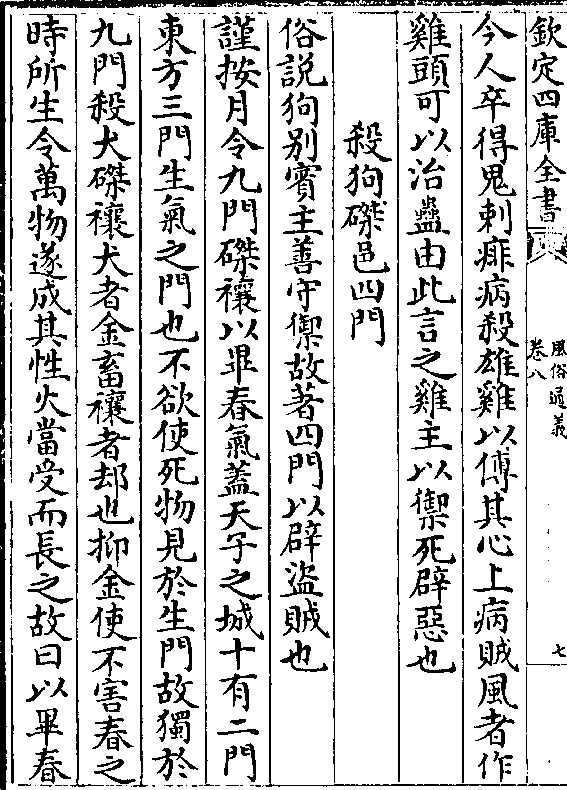 欽定四庫全書
風俗通義
卷八
七
今人卒得鬼刺痱病殺雄雞以傅其心上病賊風者作
雞頭可以治蠱由此言之雞主以禦死辟惡也
殺狗磔邑四門
俗說狗别賓主善守禦故著四門以辟盜賊也
謹按月令九門磔禳以畢春氣蓋天子之城十有二門
東方三門生氣之門也不欲使死物見於生門故獨於
九門殺犬磔禳犬者金畜禳者却也抑金使不害春之
時所生令萬物遂成其性火當受而長之故曰以畢春